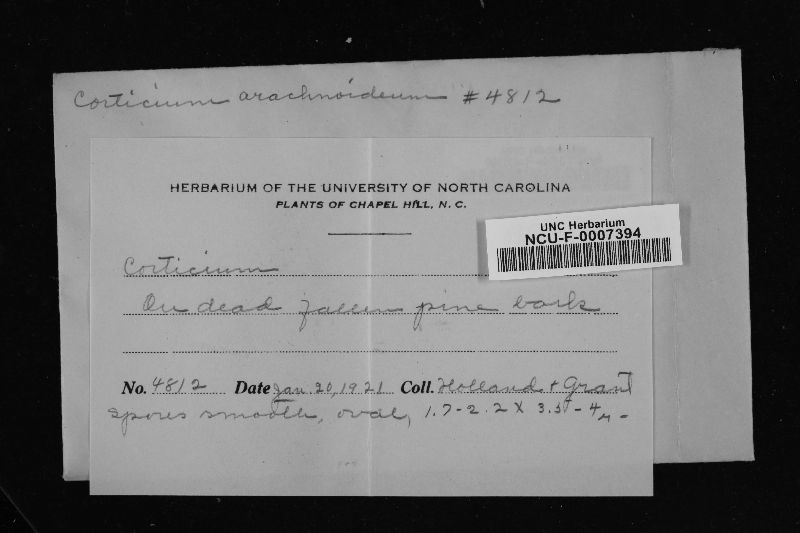 Corticium arachnoideum #4812
HERBARIUM OF THE UNIVERSITY OF NORTH CAROLINA
PLANTS OF CHAPEL HILL, N. C.
UNC Herbarium
NCU-F-0007394
Corticium
On dead fallen pine bark
No. 4812 Date Jan 20, 1921 Coll. Holland + Grant
Spores smooth, oval, 1.7-2.2 X 3.5-4µ-